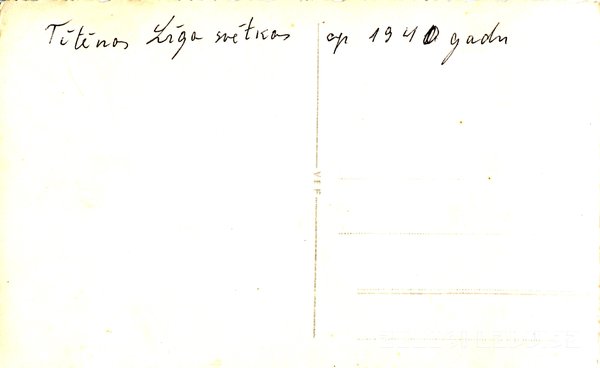 Tītēnos Līgo svētkos ap 1940 gadu
VEF